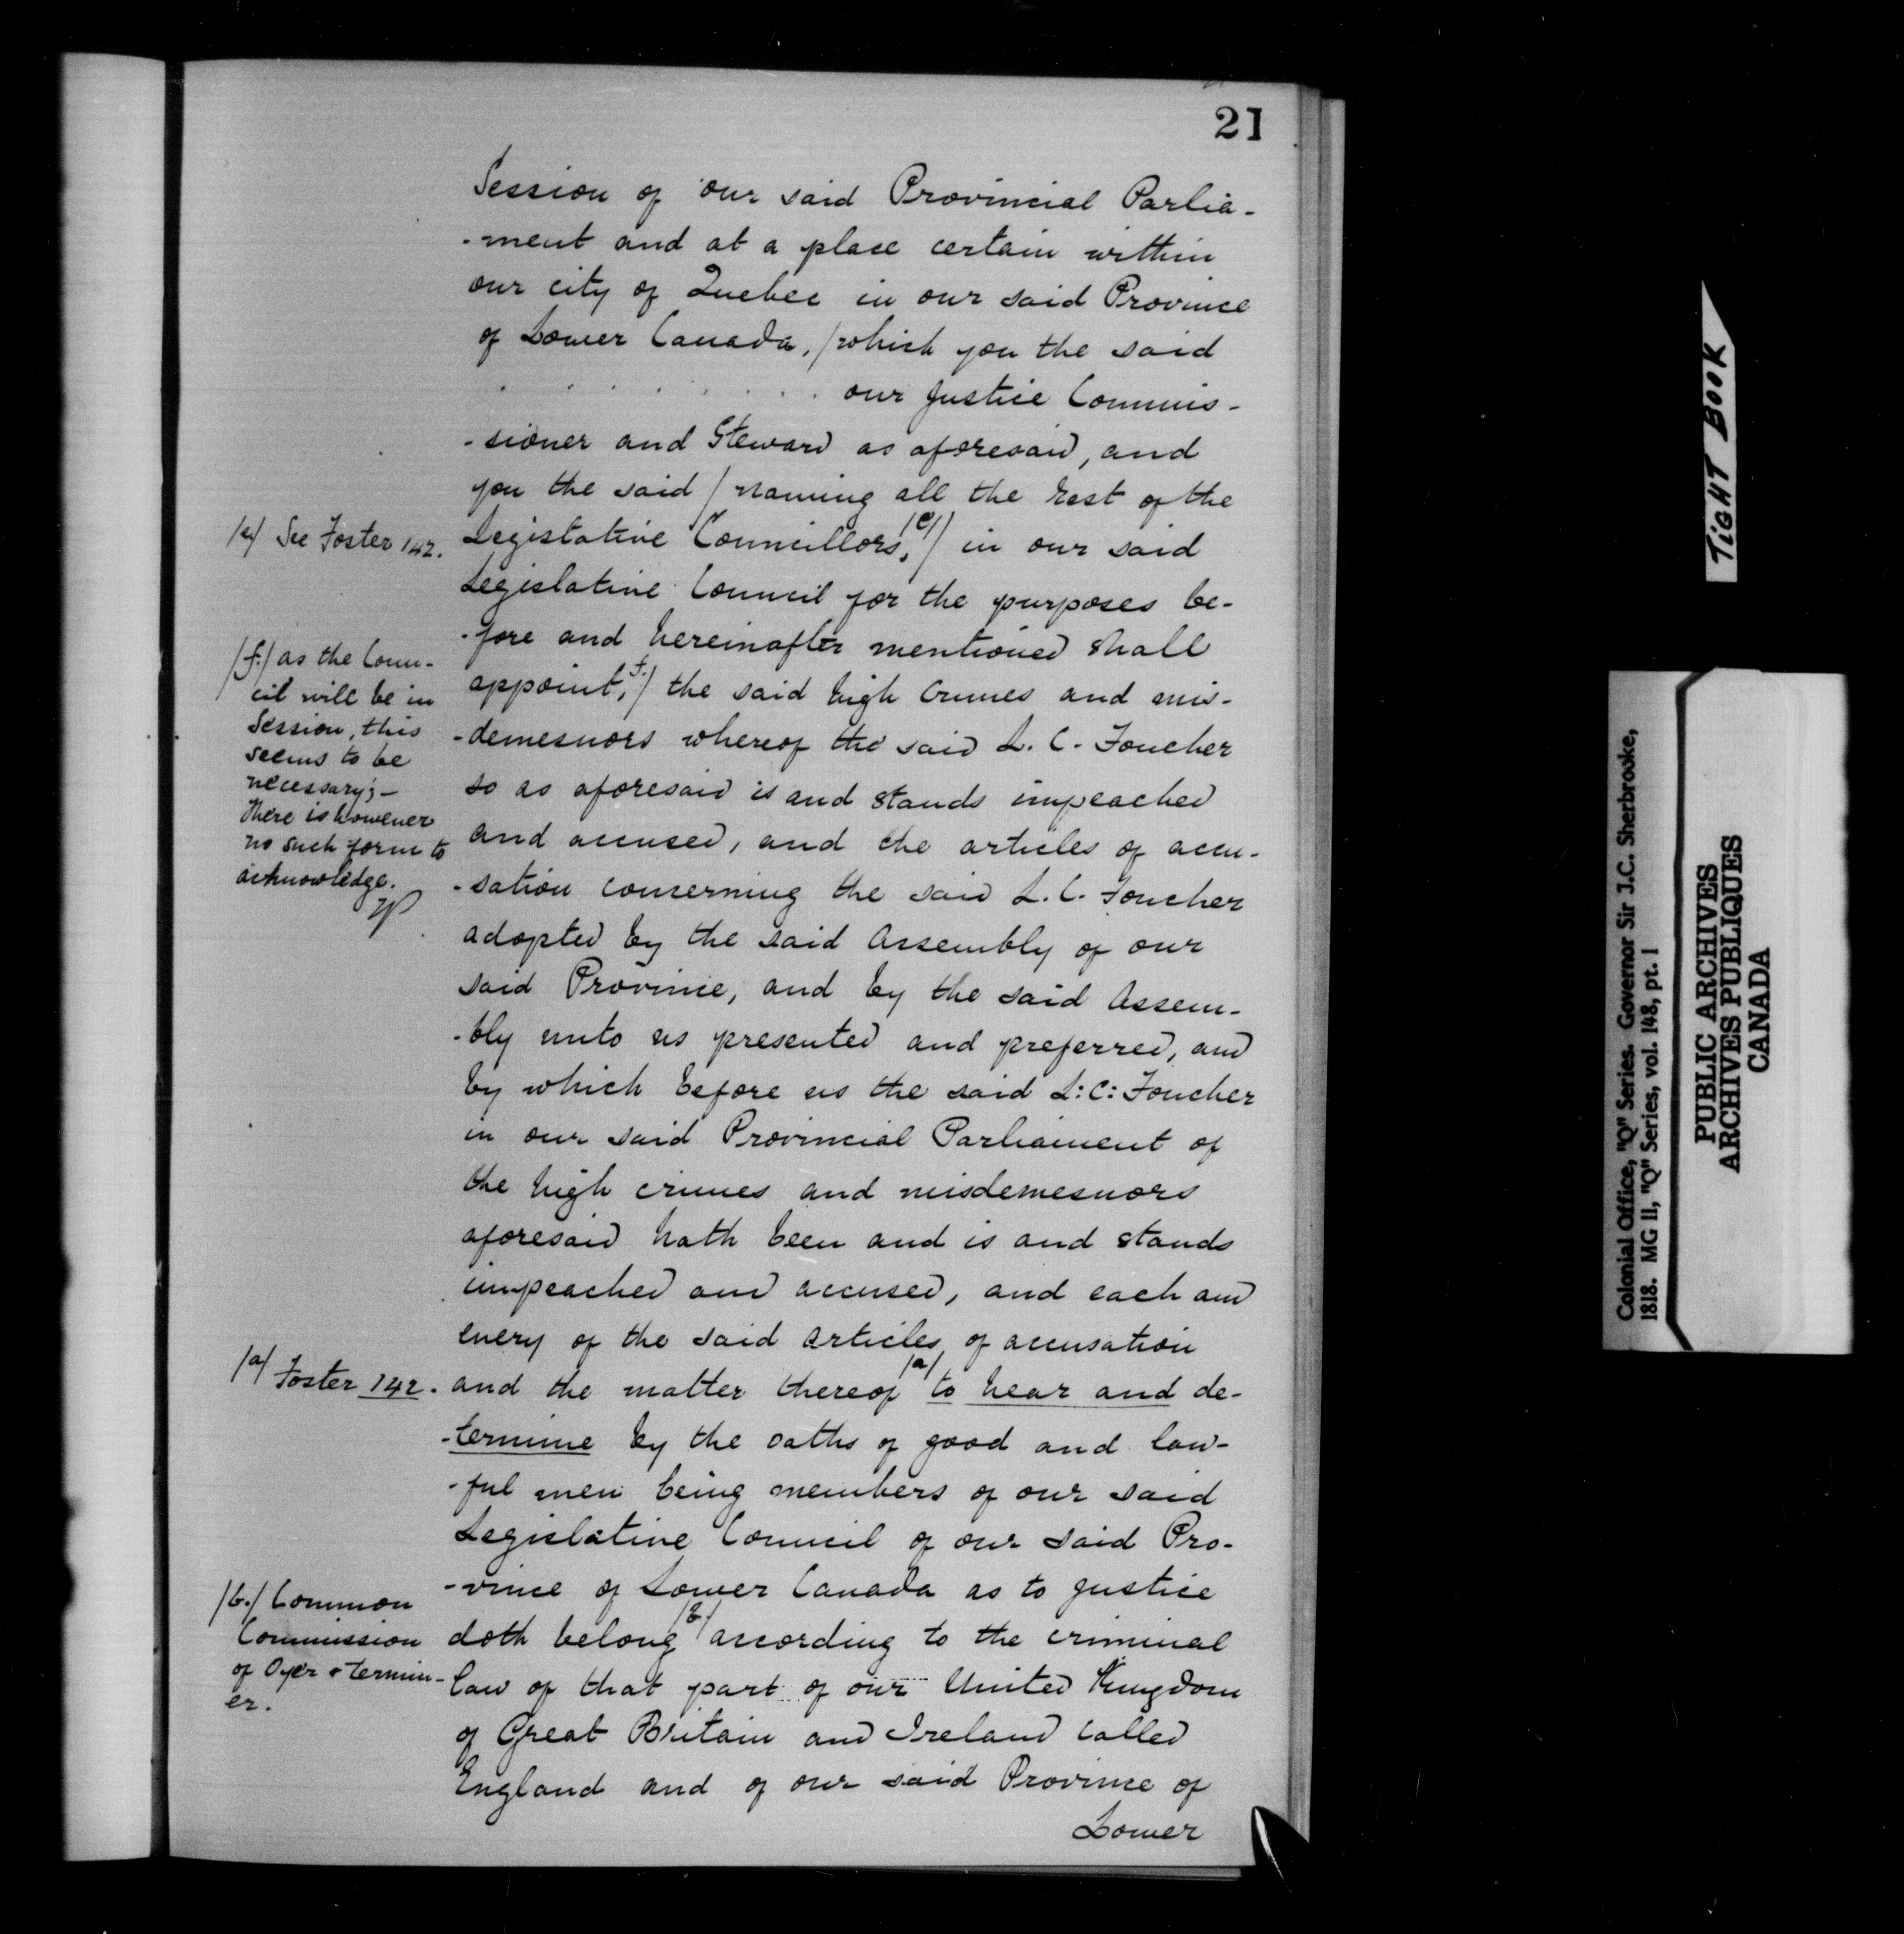 21
Session of our said Provincial Parlia-
-ment and at a place certain within
our city of Quebec in our said Province
of Lower Canada, /which you the said
. . . . . . . our Justice Commis-
-sioner and Steward as aforesaid, and
you the said / naming all the rest of the
/e/ See Foster 142.
Legislative Councillors,/e/) in our said
Legislative Council for the purposes be-
-fore and hereinafter mentioned shall
/f./ as the Coun-
cil will be in
Session, this
seems to be
necessary;-
There is however
no such form to
acknowledge.
appoint, f./ the said high Crimes and mis-
-demesnors whereof the said L. C. Foucher
so as aforesaid is and stands impeached
and accused, and the articles of accu-
-sation concerning the said L. C. Foucher
adopted by the said Assembly of our
said Province, and by the said Assem-
-bly unto us presented and preferred, and
by which before us the said L: C: Foucher
in our said Provincial Parliament of
the high crimes and misdemesnors
aforesaid hath been and is and stands
impeached and accused, and each and
every of the said articles of accusation
/a/ Foster 142.
and the matter thereof /a/ to hear and de-
-termine by the oaths of good and law-
-ful men being members of our said
Legislative Council of our said Pro-
-vince of Lower Canada as to justice
/b./ Common
Commission
of Oyer & termin-
er.
doth belong /b/ according to the criminal
law of that part of our United Kingdom
of Great Britain and Ireland called
England and of our said Province of
Lower
TIGHT BOOK
Colonial Office, "Q" Series. Governor Sir J.C. Sherbrooke,
1818. MG 11, "Q" Series, vol. 148, pt. 1
PUBLIC ARCHIVES
ARCHIVES PUBLIQUES
CANADA